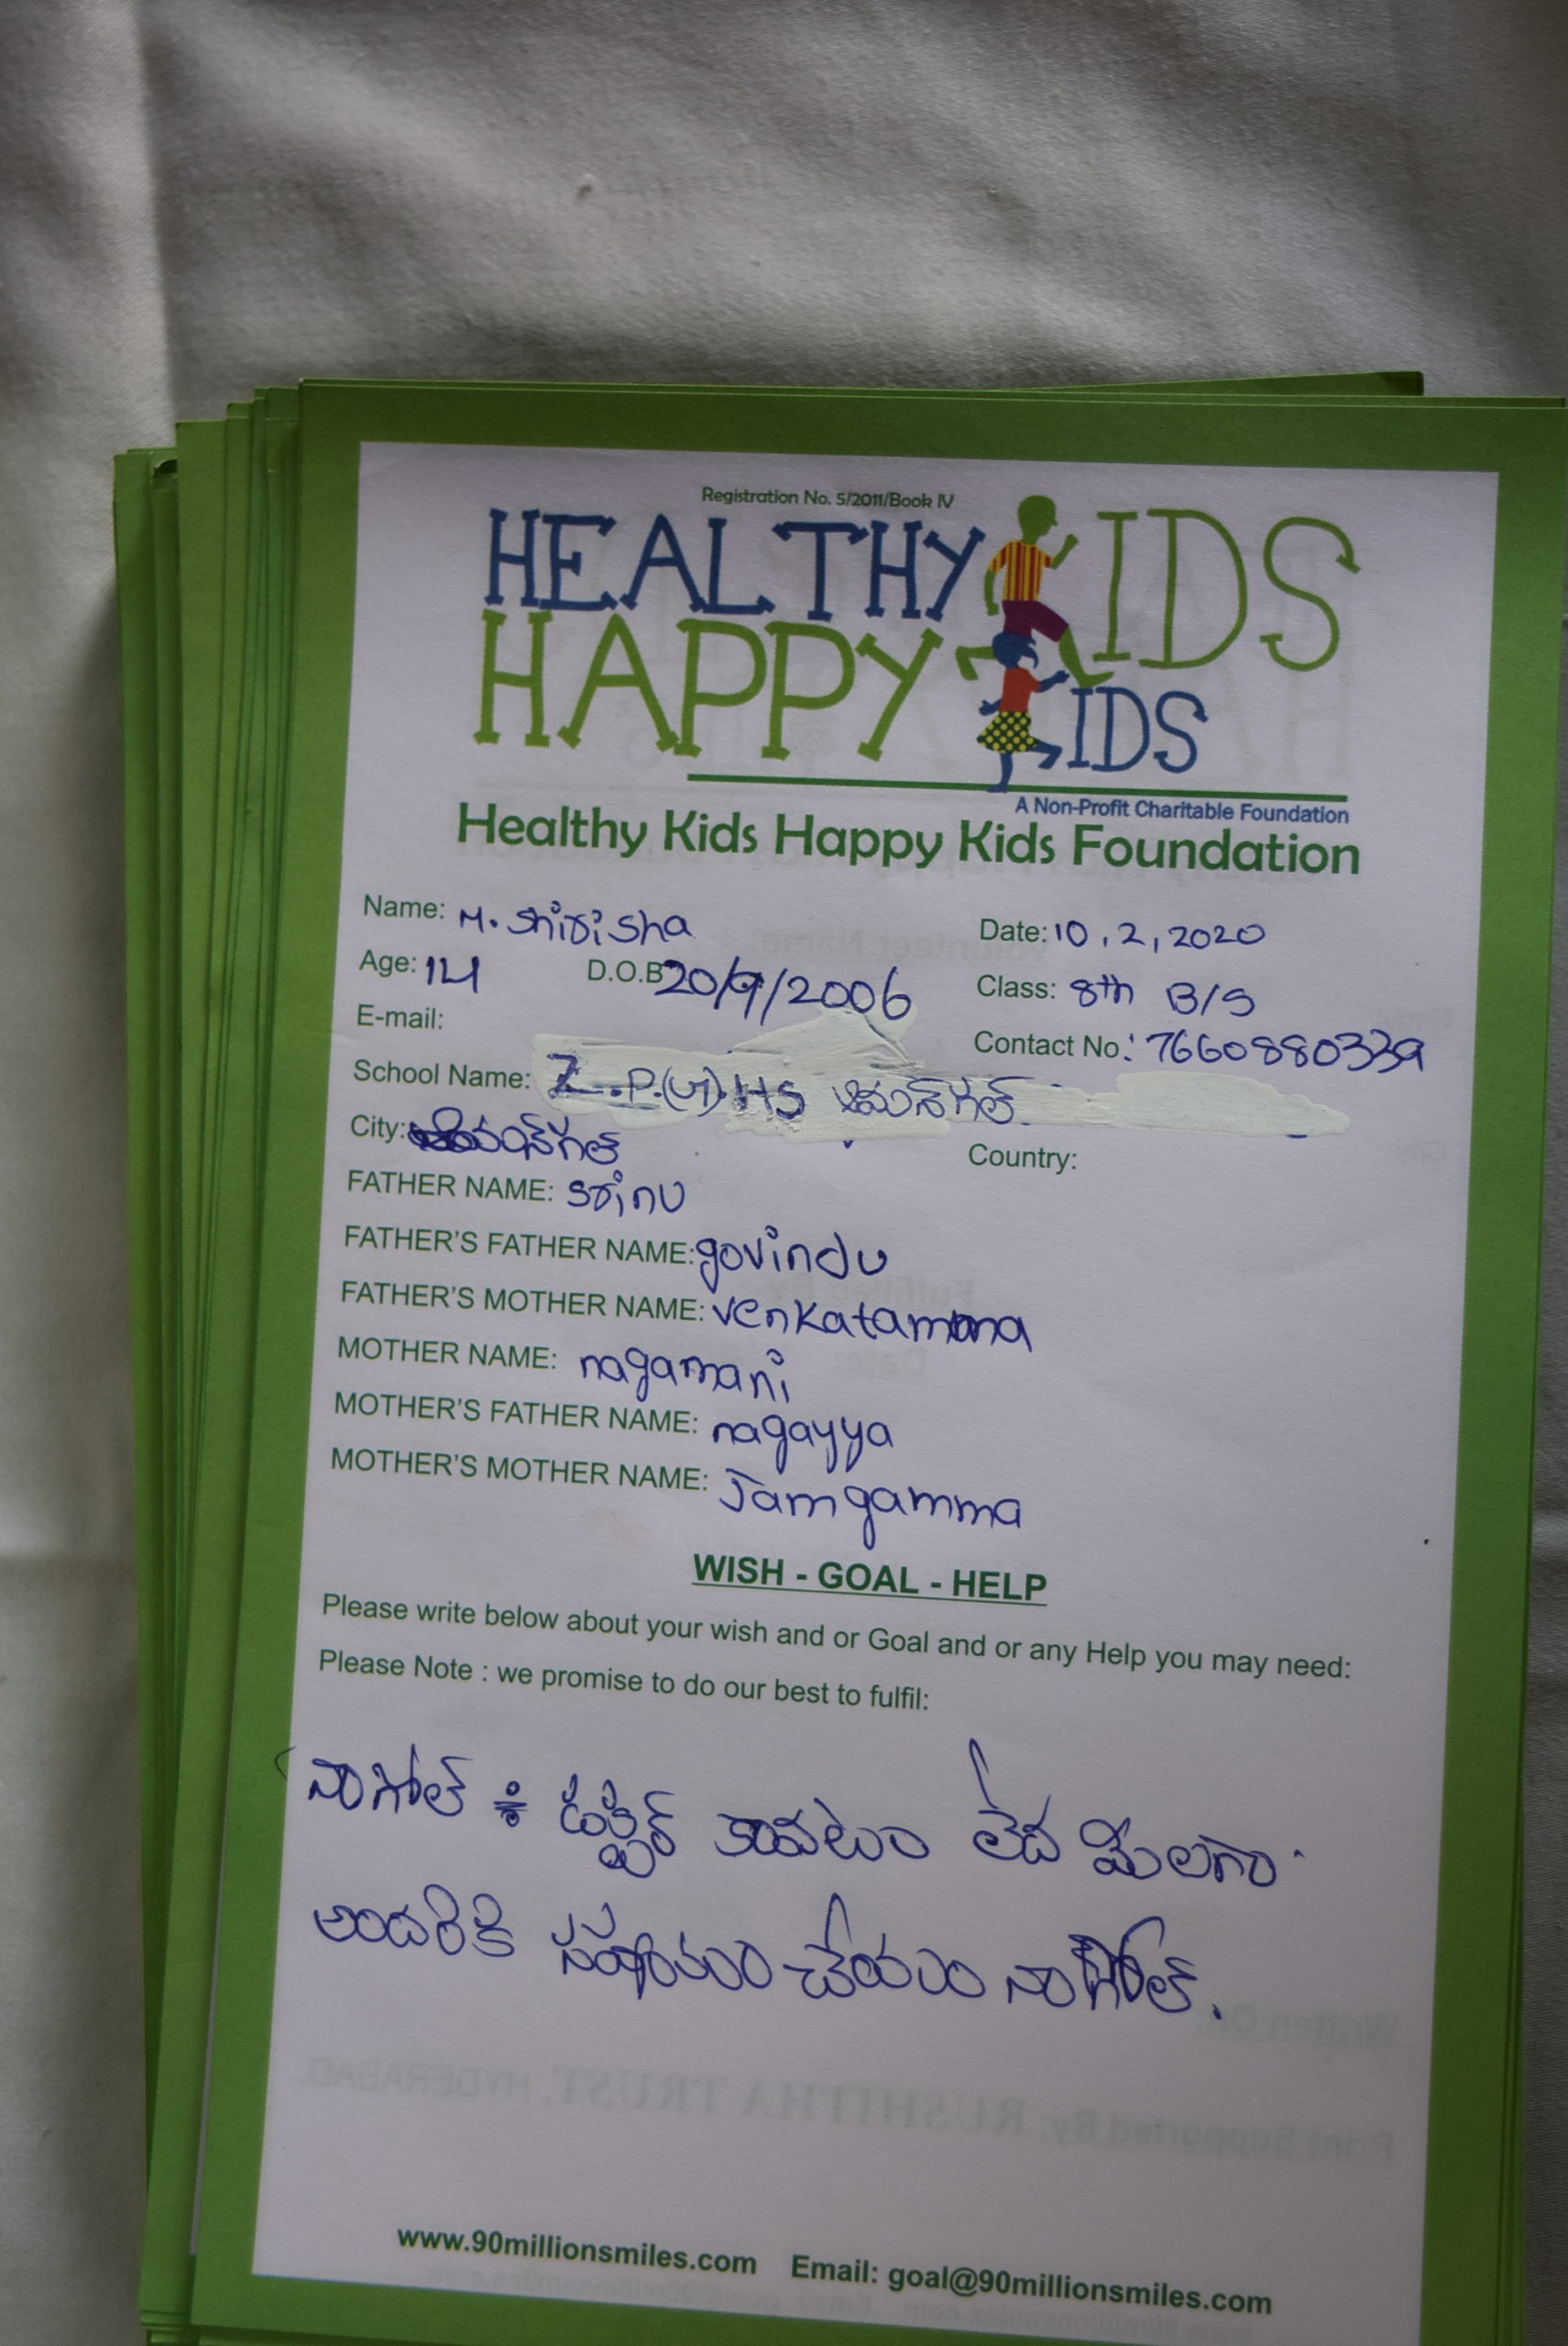 Registration No. 5/2011/Book IV
HEALTHY KIDS
HAPPY KIDS
A Non-Profit Charitable Foundation
Healthy Kids Happy Kids Foundation
Name: M. Shirisha Date: 10.2,2020
Age: 14 D.O.B 20/9/2006 Class: 8th B/S
E-mail: Contact No.: 7660880339
School Name: Z.P.(G).HS ఆమన్‌గల్
City: ఆమన్‌గల్ Country:
FATHER NAME: Srinu
FATHER'S FATHER NAME: govindu
FATHER'S MOTHER NAME: venkatamma
MOTHER NAME: nagamani
MOTHER'S FATHER NAME: nagayya
MOTHER'S MOTHER NAME: Jamgamma
WISH - GOAL - HELP
Please write below about your wish and or Goal and or any Help you may need:
Please Note : we promise to do our best to fulfil:
నాగోల్ కావటం లేద మీలగా
అందరికి సహాయం చేయటం నాగోల్.
www.90millionsmiles.com Email: goal@90millionsmiles.com